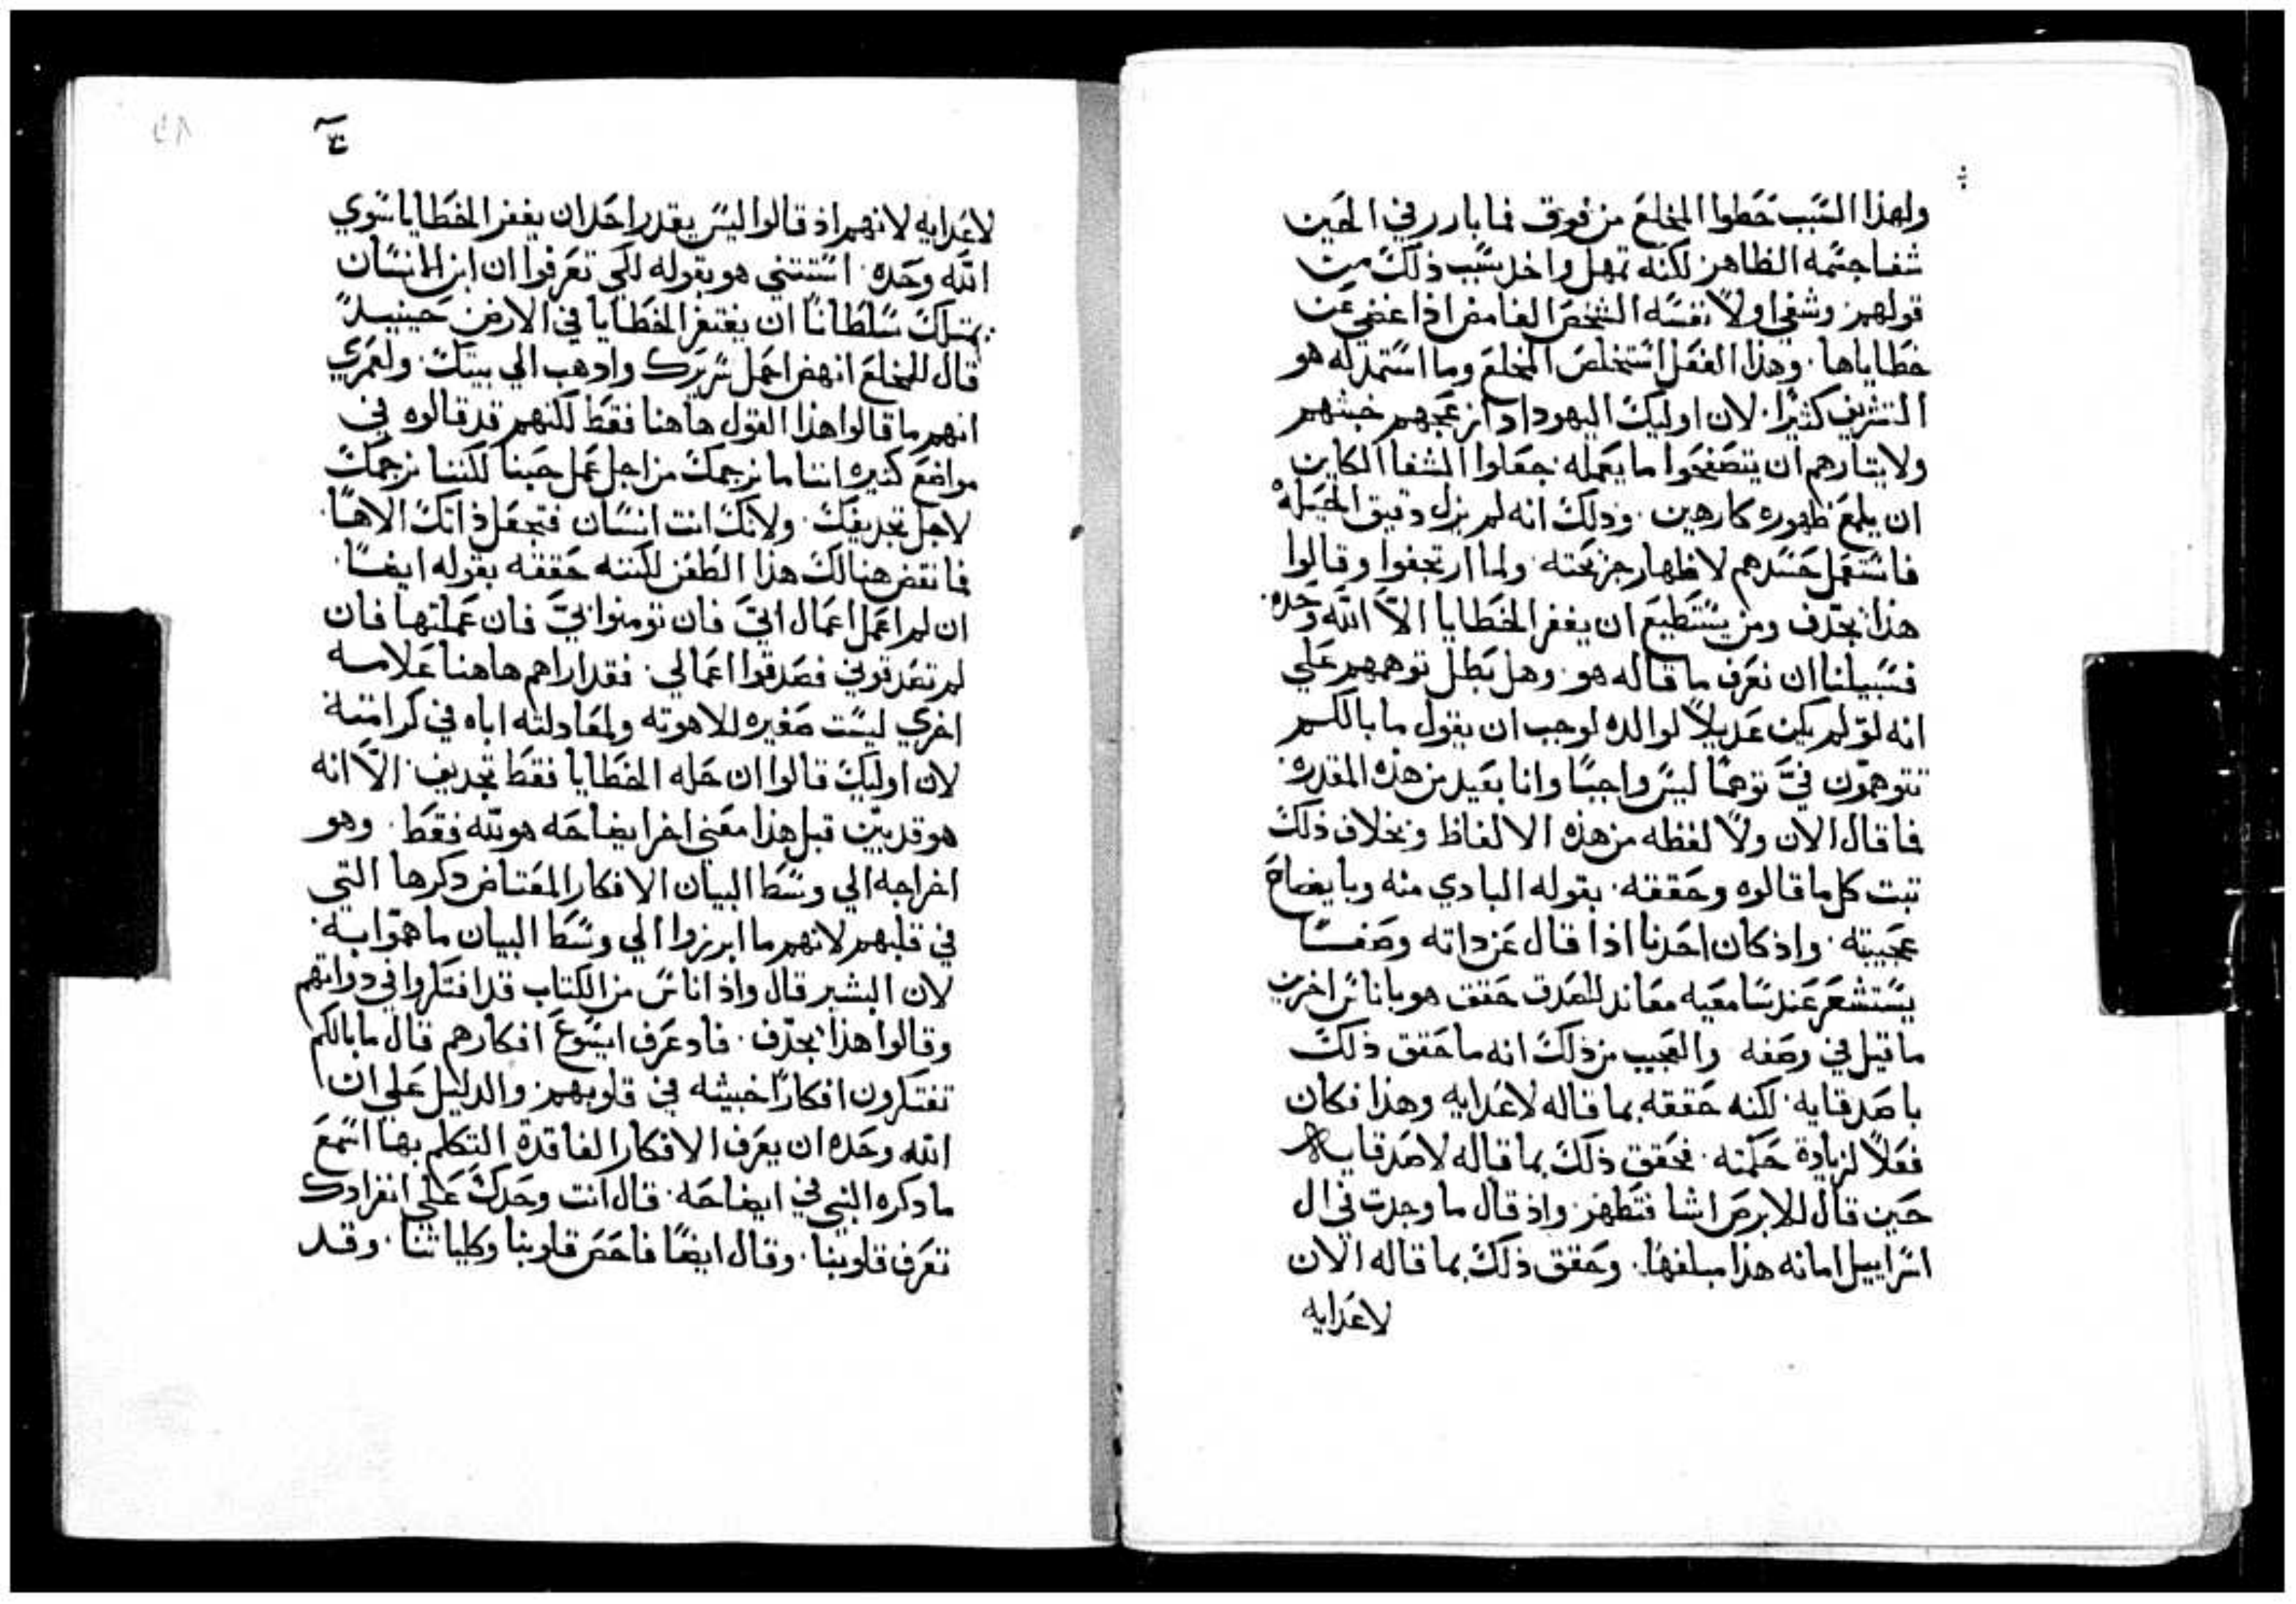 ولهذا السبب حطوا المخلع من فوق فما بادر في الحين
شفا جسمه الظاهر لكنه تمهل واخل سبب ذلك من
قولهم وشفي اولاً نفسه الشخص الغامض اذا غضي عن
خطاياها · وهذا الفعل استخلص المخلع وما استمد له هو
التشريف كثيرًا · لان اوليك اليهود اد ازعجهم خبثهم
ولايتارهم ان يتصفحوا ما يعمله · جعلوا الشفا الكاين
ان يلمع ظهوره كارهين · وذلك انه لم يزل دقيق الحيله
فاستعمل حسدهم لاظهار جزيحته · ولما ارتجفوا وقالوا
هذا يجدّف ومن يستطيع ان يغفر الخطايا الاّ الله وحده ·
فسبيلنا ان نعرف ما قاله هو · وهل بطل توهمهم علي
انه لوّ لم يكن عديلاً لوالده لوجب ان يقول ما بالكم
تتوهمون فيّ توهمًا ليس واجبًا وانا بعيد من هذه المقدره ·
فما قال الان ولاً لفظه من هذه الالفاظ وبخلاف ذلك
تبت كل ما قالوه وحققه · بقوله البادي منه وبايضاح
عجيبته · واذ كان احدنا اذا قال عن داته وصفًا
يستشعر عند سامعيه معاند للصدق حقق هو باناس اخرين
ما قيل في وصفه والعجيب من ذلك انه ما حقق ذلك
باصدقايه · لكنه حققه بما قاله لاعدايه وهذا فكان
فعلاً لزيادة حكمته · فحقق ذلك بما قاله لاصدقايه
حين قال للابرص اشا فتطهر · واذ قال ما وجدت في ال
اسراييل امانه هذا مبلغها · وحقق ذلك بما قاله الان
لاعدايه
لاعدايه لانهم اذ قالوا ليس يقدر احد ان يغفر الخطايا سوي
الله وحده · استتني هو بقوله لكي تعرفوا ان ابن الانسان
يمتلك سلطانًا ان يغتفر الخطايا في الارض حينيدً
قال للمخلع انهض احمل سريرك وادهب الي بيتك · ولعمري
انهم ما قالوا هذا القول هاهنا فقط لكنهم قد قالوه في
مواضع كثيره اننا ما نرجمك من اجل عمل حسنا لكننا نرجمك
لاجل تجديفك · ولانك انت انسان فتجعل ذاتك الاهًا ·
فما نقض هنالك هذا الطعن لكننه حققه بقوله ايضًا ·
ان لم اعمل اعمال ابيّ فان تومنوا بيّ فان عملتها فان
لم تصدقوني فصدقوا اعمالي · فقد اراهم هاهنا علامه
اخري ليست صغيره للاهوته ولمعادلته اباه في كرامته
لان اوليك قالوا ان حله الخطايا فقط تجديف · الاّ انه
هو قد بيّن قبل هذا معني اخر ايضاحه هو لله فقط · وهو
اخراجه الي وسط البيان الافكار المعتاض دكرها التي
في قلبهم لانهم ما ابرزوا الي وسط البيان ما همّوا به ·
لان البشير قال واذ اناس من الكتاب قد افتكروا في دواتهم
وقالوا هذا يجدّف · فاد عرف ايسوع افكارهم قال ما بالكم
تفتكرون افكارًا خبيثه في قلوبهم · والدليل علي ان
الله وحده ان يعرف الافكار الفاقدة التكلم بها اسمع
ما دكره النبي في ايضاحه · قال انت وحدك علي انفرادك
تعرف قلوبنا · وقال ايضًا فاحص قلوبنا وكلياتنا · وقد